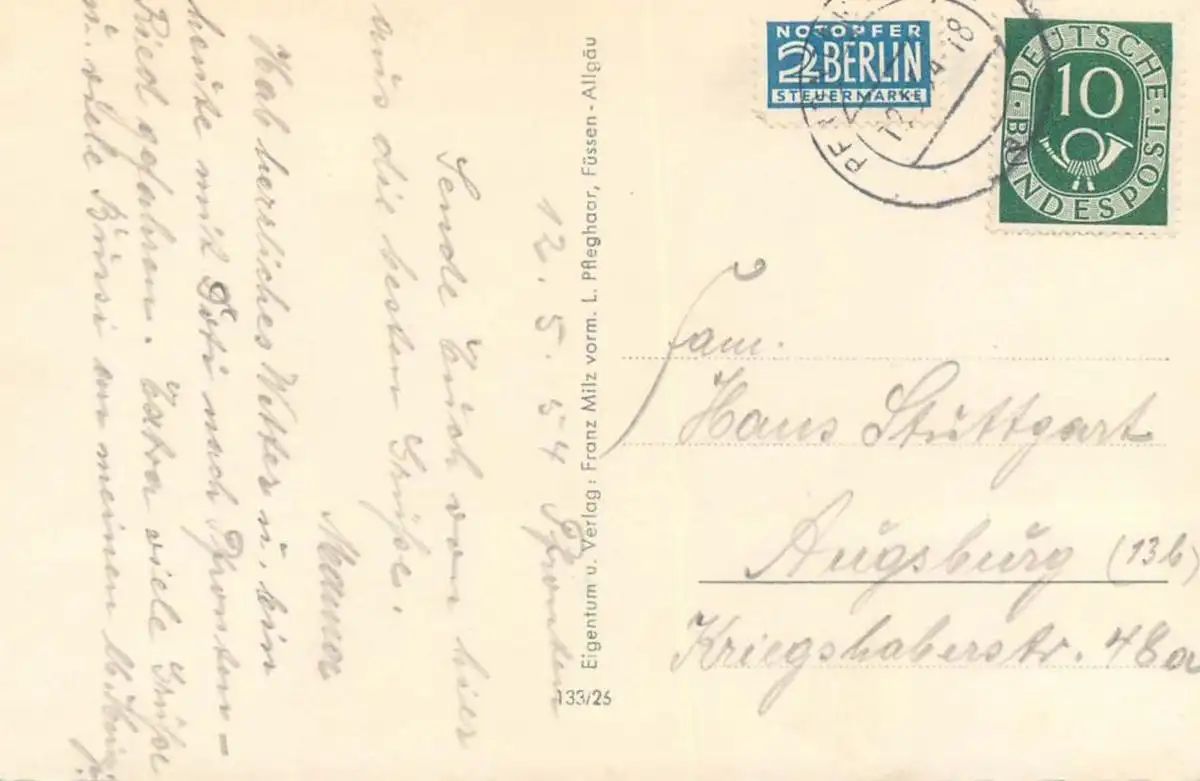 12. 5. 54 Pfronten
Sende Euch von hier
aus die besten Grüße.
Mama
Hab herrliches Wetter u. bin
heute mit nach Pfronten-
Ried gefahren. Extra viele Grüße
u. viele Bussi an meinen
Eigentum u. Verlag: Franz Milz vorm. L. Pfleghaar, Füssen-Allgäu
133/26
NOTOPFER
2 BERLIN
STEUERMARKE
DEUTSCHE
10
BUNDESPOST
Fam.
Hans Stuttgart
Augsburg (13b)
Kriegshaberstr. 48a